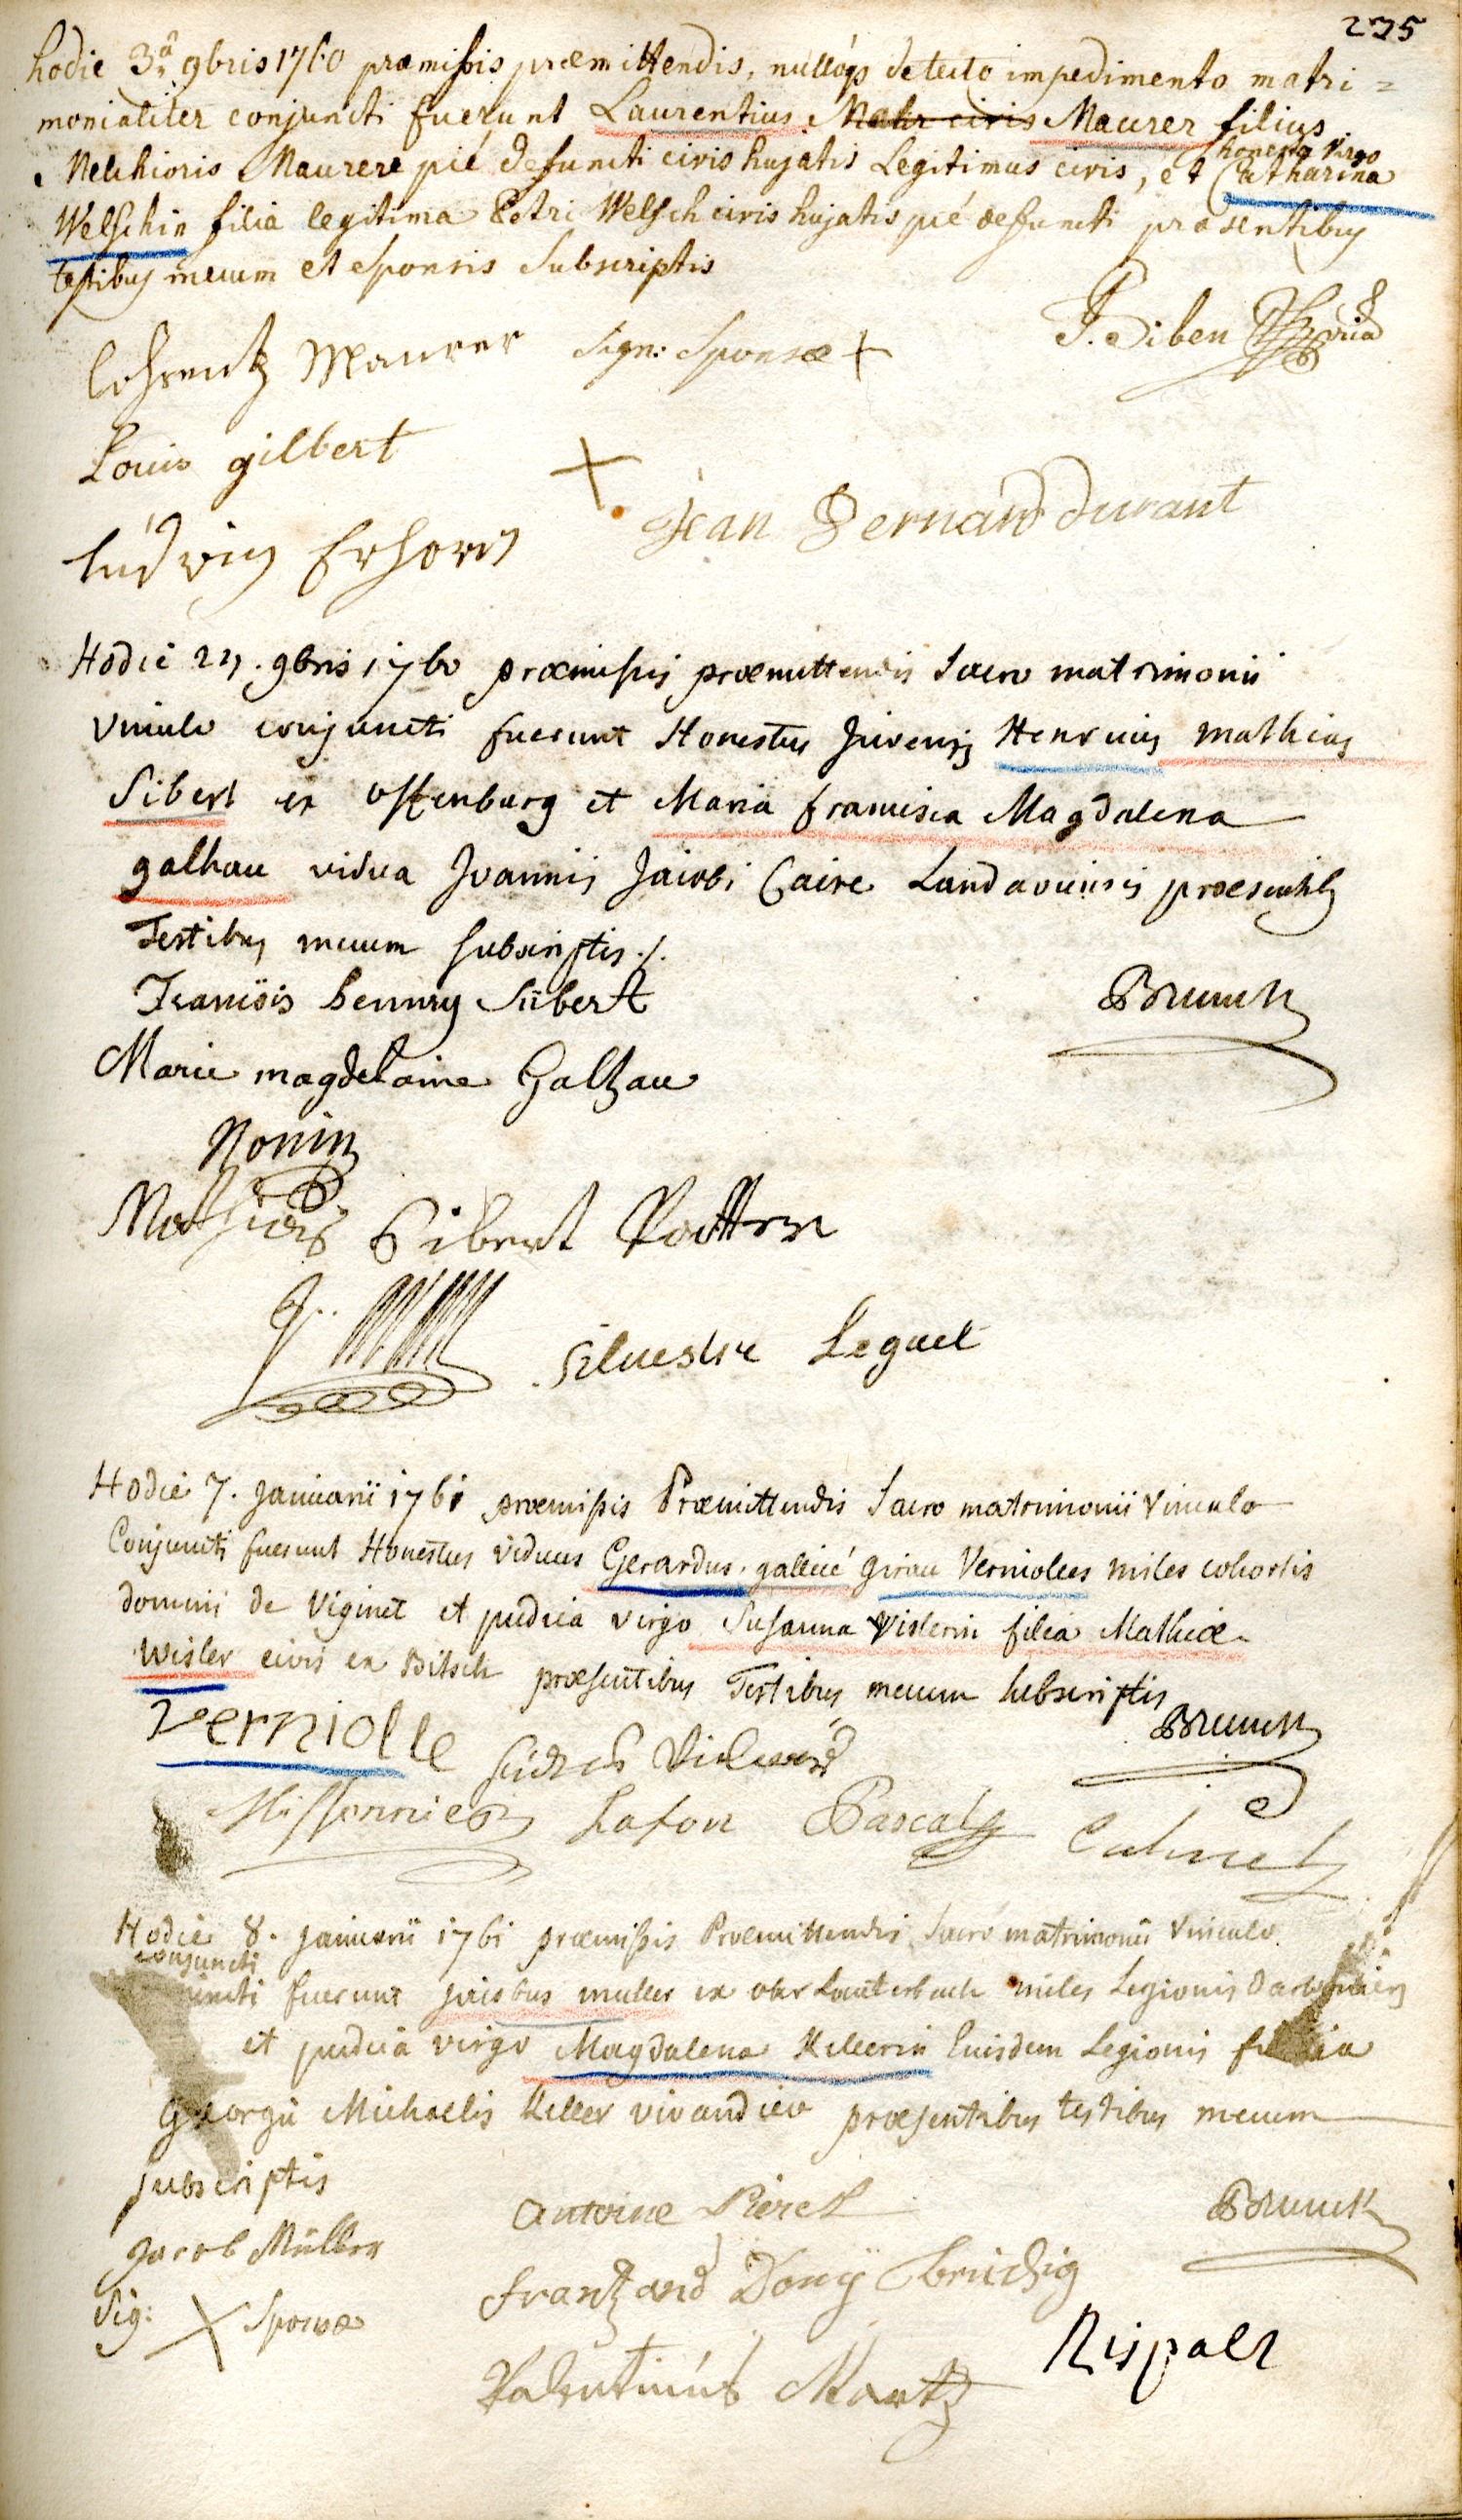 235
hodie 3a 9bris 1760 præmissis præmittendis, nulloq detecto impedimento matri=
monialiter conjuncti fuerunt Laurentius Mahr civis Maurer filius
honesta virgo
Melchioris Maurere pié defuncti civis hujatis Legitimus civis, et Catharina
Welschin filia legitima Petri Welsch civis hujatis pié defuncti præsentibus
testibus mecum et sponsis subscriptis
Lohrentz Maurer Sign: Sponsæ +
Louis gilbert +
Jean Bernard durant
Ludwig Erhard
Hodie 9bris 1760 præmissis præmittendis Sacro matrimonii
vinculo conjuncti fuerunt Honestus Juvenis Henricus mathias
Sibert ex offenburg et Maria francisca Magdalena
galhau vidua Joannis Jacobi Caire Landaviensis præsentib
Testibus mecum subscriptis ./.
Francois hennry Siibert Brunck
Marie magdelaine Galhau
Nonin
Mathias Sibert Vatter
Silvestre Leguel
Hodie 7. Januarii 1761 præmissis Præmittendis Sacro matrimonii Vinculo
Conjuncti fuerunt Honestus viduus Gerardus gallicé girau Verniolles miles cohortis
domini de Viginet et pudica virgo Susanna Vislerin filia Mathiæ
wisler civis ex Bitsch præsentibus Testibus mecum subscriptis
Verniolle Brunck
Missonnier Lafon Pascal Calmel
Hodie 8. januarii 1761 præmissis Præmittendis Sacro matrimonii Vinculo
conjuncti
fuerunt jacobus muller ex ober Lauterbach miles Legionis
et pudica virgo Magdalena Kellerin Eiusdem Legionis filia
Georgii Michaelis Keller vivandier præsentibus testibus mecum
subscriptis
Antoine Pieret Brunck
Jacob Müller
Sig: X Sponsæ
Rispals
Valentinus Martz